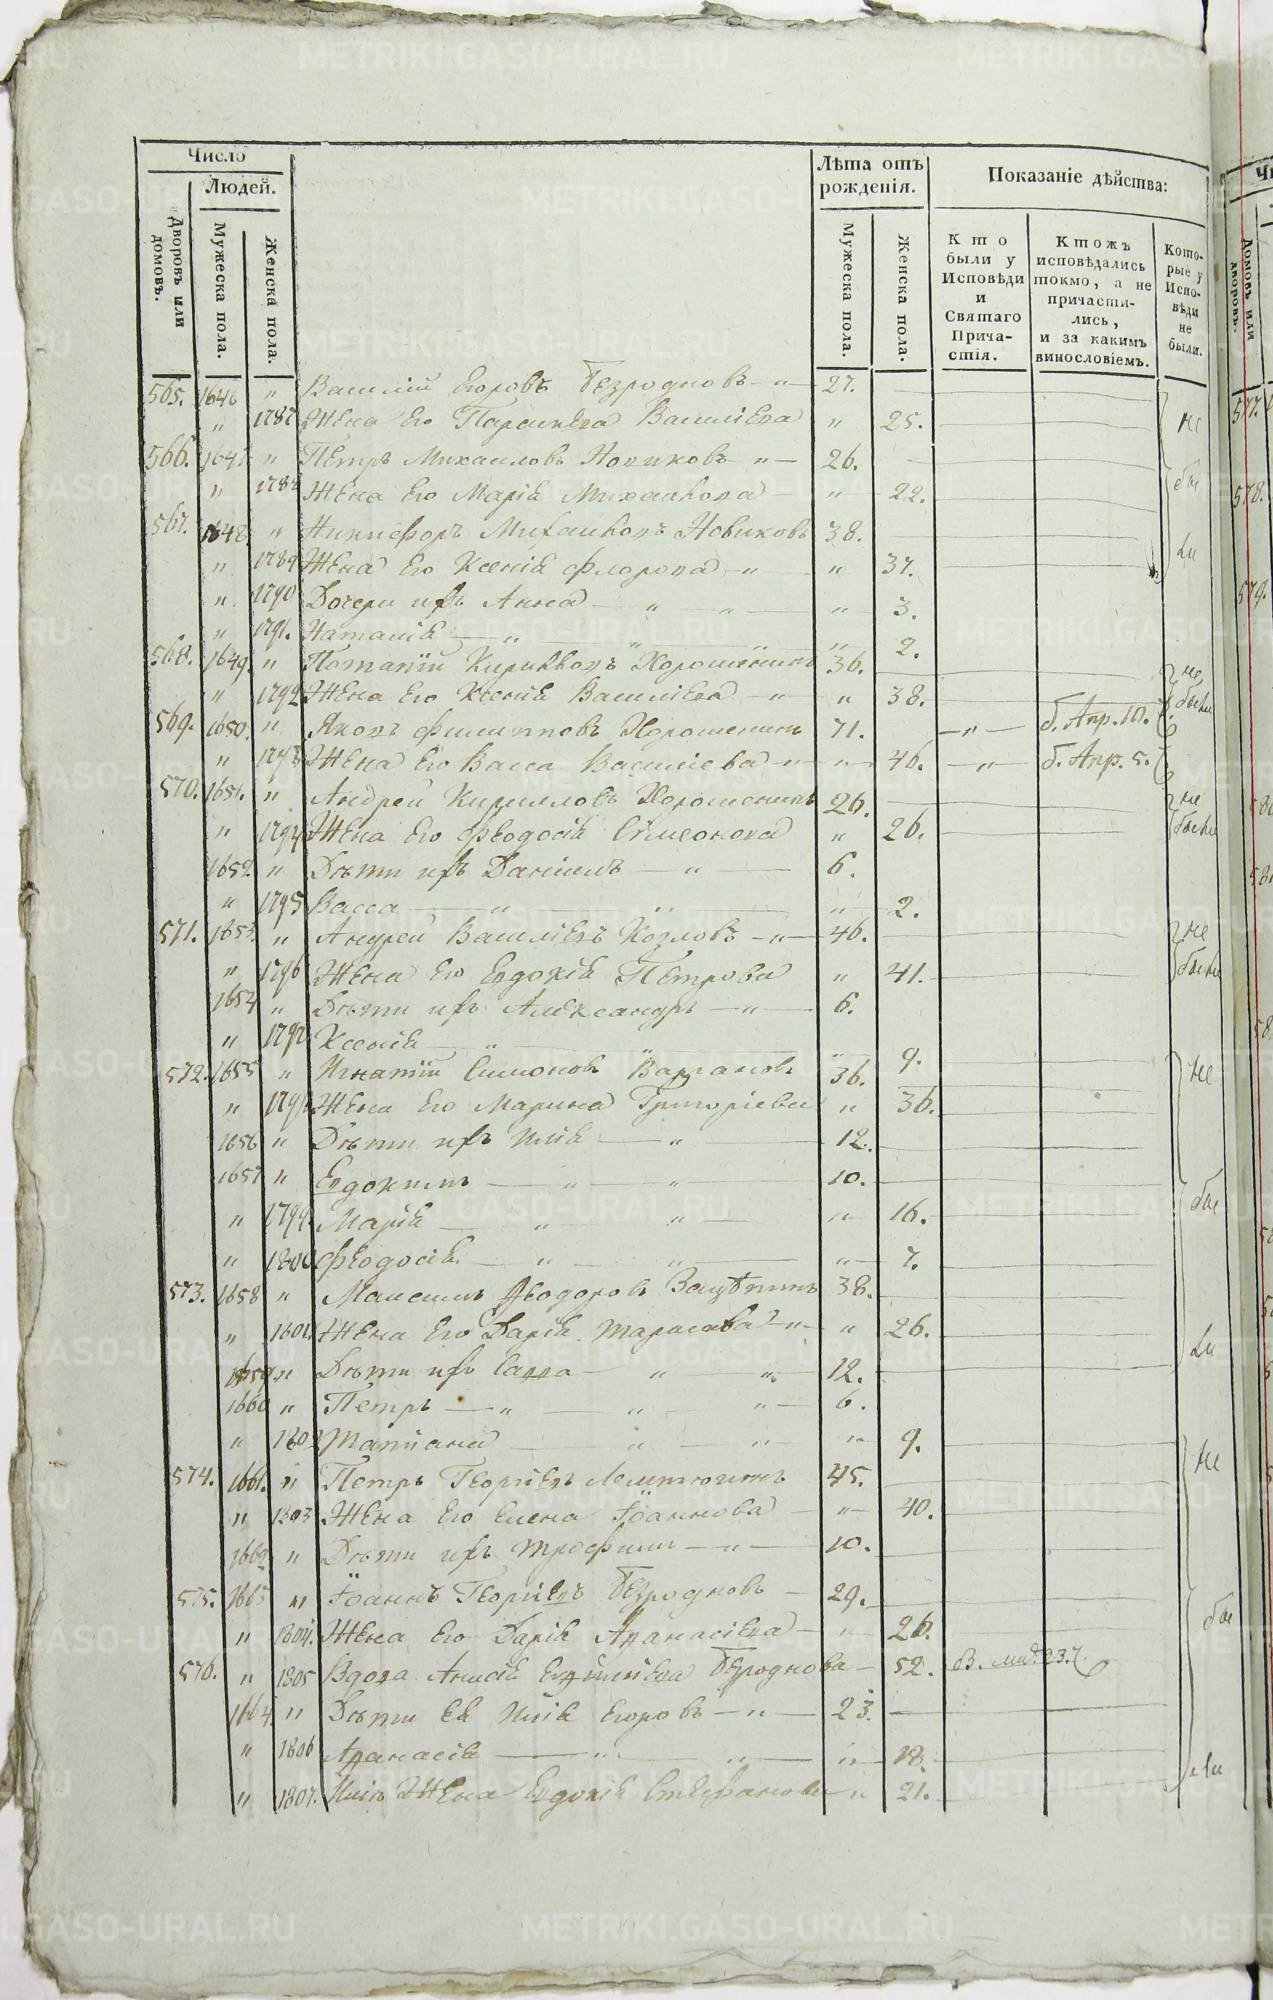 Число
Людей.
Дворовъ или домовъ.
Мужеска пола.
Женска пола.
Лѣта отъ рожденія.
Мужеска пола.
Женска пола.
Показаніе дѣйства:
Кто были у Исповѣди и Святаго Причастія.
Ктожъ исповѣдались токмо, а не причастились, и за какимъ винословіемъ.
Которые у Исповѣди не были.
565. 1646 " Василій Егоровъ Безродновъ — " — 27.
" 1787 Жена Его Параскева Василіева " 25. не
566. 1647 " Петръ Михаиловъ Новиковъ — " — 26.
" 1788 Жена Его Марія Михаилова — " — 22. бы
567. 1648. " Никифоръ Михаиловъ Новиковъ 38.
" 1789 Жена Его Ксенія Флорова — " — " 37. ли
" 1790 Дочери ихъ Анна — " — " — " 3.
" 1791. Наталія — " — " — " 2.
568. 1649. " Потапій Кирилловъ Хорошенинъ 36. не
" 1792 Жена Его Ксенія Василіева — " " 38. были
569. 1650. " Яковъ Филипповъ Хорошенинъ 71. — " — б. Апр. 10.
" 1793 Жена Его Васса Василіева — " — " — 46. — " — б. Апр. 5.
570. 1651. " Андрей Кирилловъ Хорошенинъ 26. не
" 1794 Жена Его Феодосія Симеонова " 26. были
1652. " Дѣти ихъ Даніилъ — " — 6.
" 1795 Васса — " — " — " 2.
571. 1653. " Андрей Василіевъ Козловъ — " — 46. не
" 1796 Жена Его Евдокія Петрова " 41. были
1654 " Дѣти ихъ Александръ — " — 6.
" 1797 Ксенія — " — " — " 9.
572. 1655 " Игнатій Симоновъ 36. не
" 1798 Жена Его Марина Григоріева " 36.
1656 " Дѣти ихъ Илія — " — 12.
1657 " Евдокимъ — " — " — 10.
" 1799. Марія — " — " — " 16. бы
" 1800 Феодосія. — " — " — " — 7.
573. 1658 " Максимъ Феодоровъ 38.
" 1801. Жена Его Дарія Тарасова — " — " 26. ли
1659 " Дѣти ихъ Савва — " — " 12.
1660 " Петръ — " — " — " — 6.
" 1802 Татіана — " — " — " 9.
574. 1661. " Петръ Георгіевъ 45. не
" 1803 Жена Его Елена Іоаннова — " — 40.
1662 " Дѣти ихъ Трофимъ — " — 10.
575. 1663 " Іоаннъ Георгіевъ Безродновъ — 29.
" 1804. Жена Его Дарія Афанасіева — " 26. бы
576. " 1805 Вдова Безроднова — 52.
1664. " Дѣти Ея Илія Егоровъ — " — 23. —
" 1806 Афанасія — " — " — " — 18.
" 1807. Иліи Жена Евдокія Стефанова — " 21. ли
METRIKI.GASO-URAL.RU